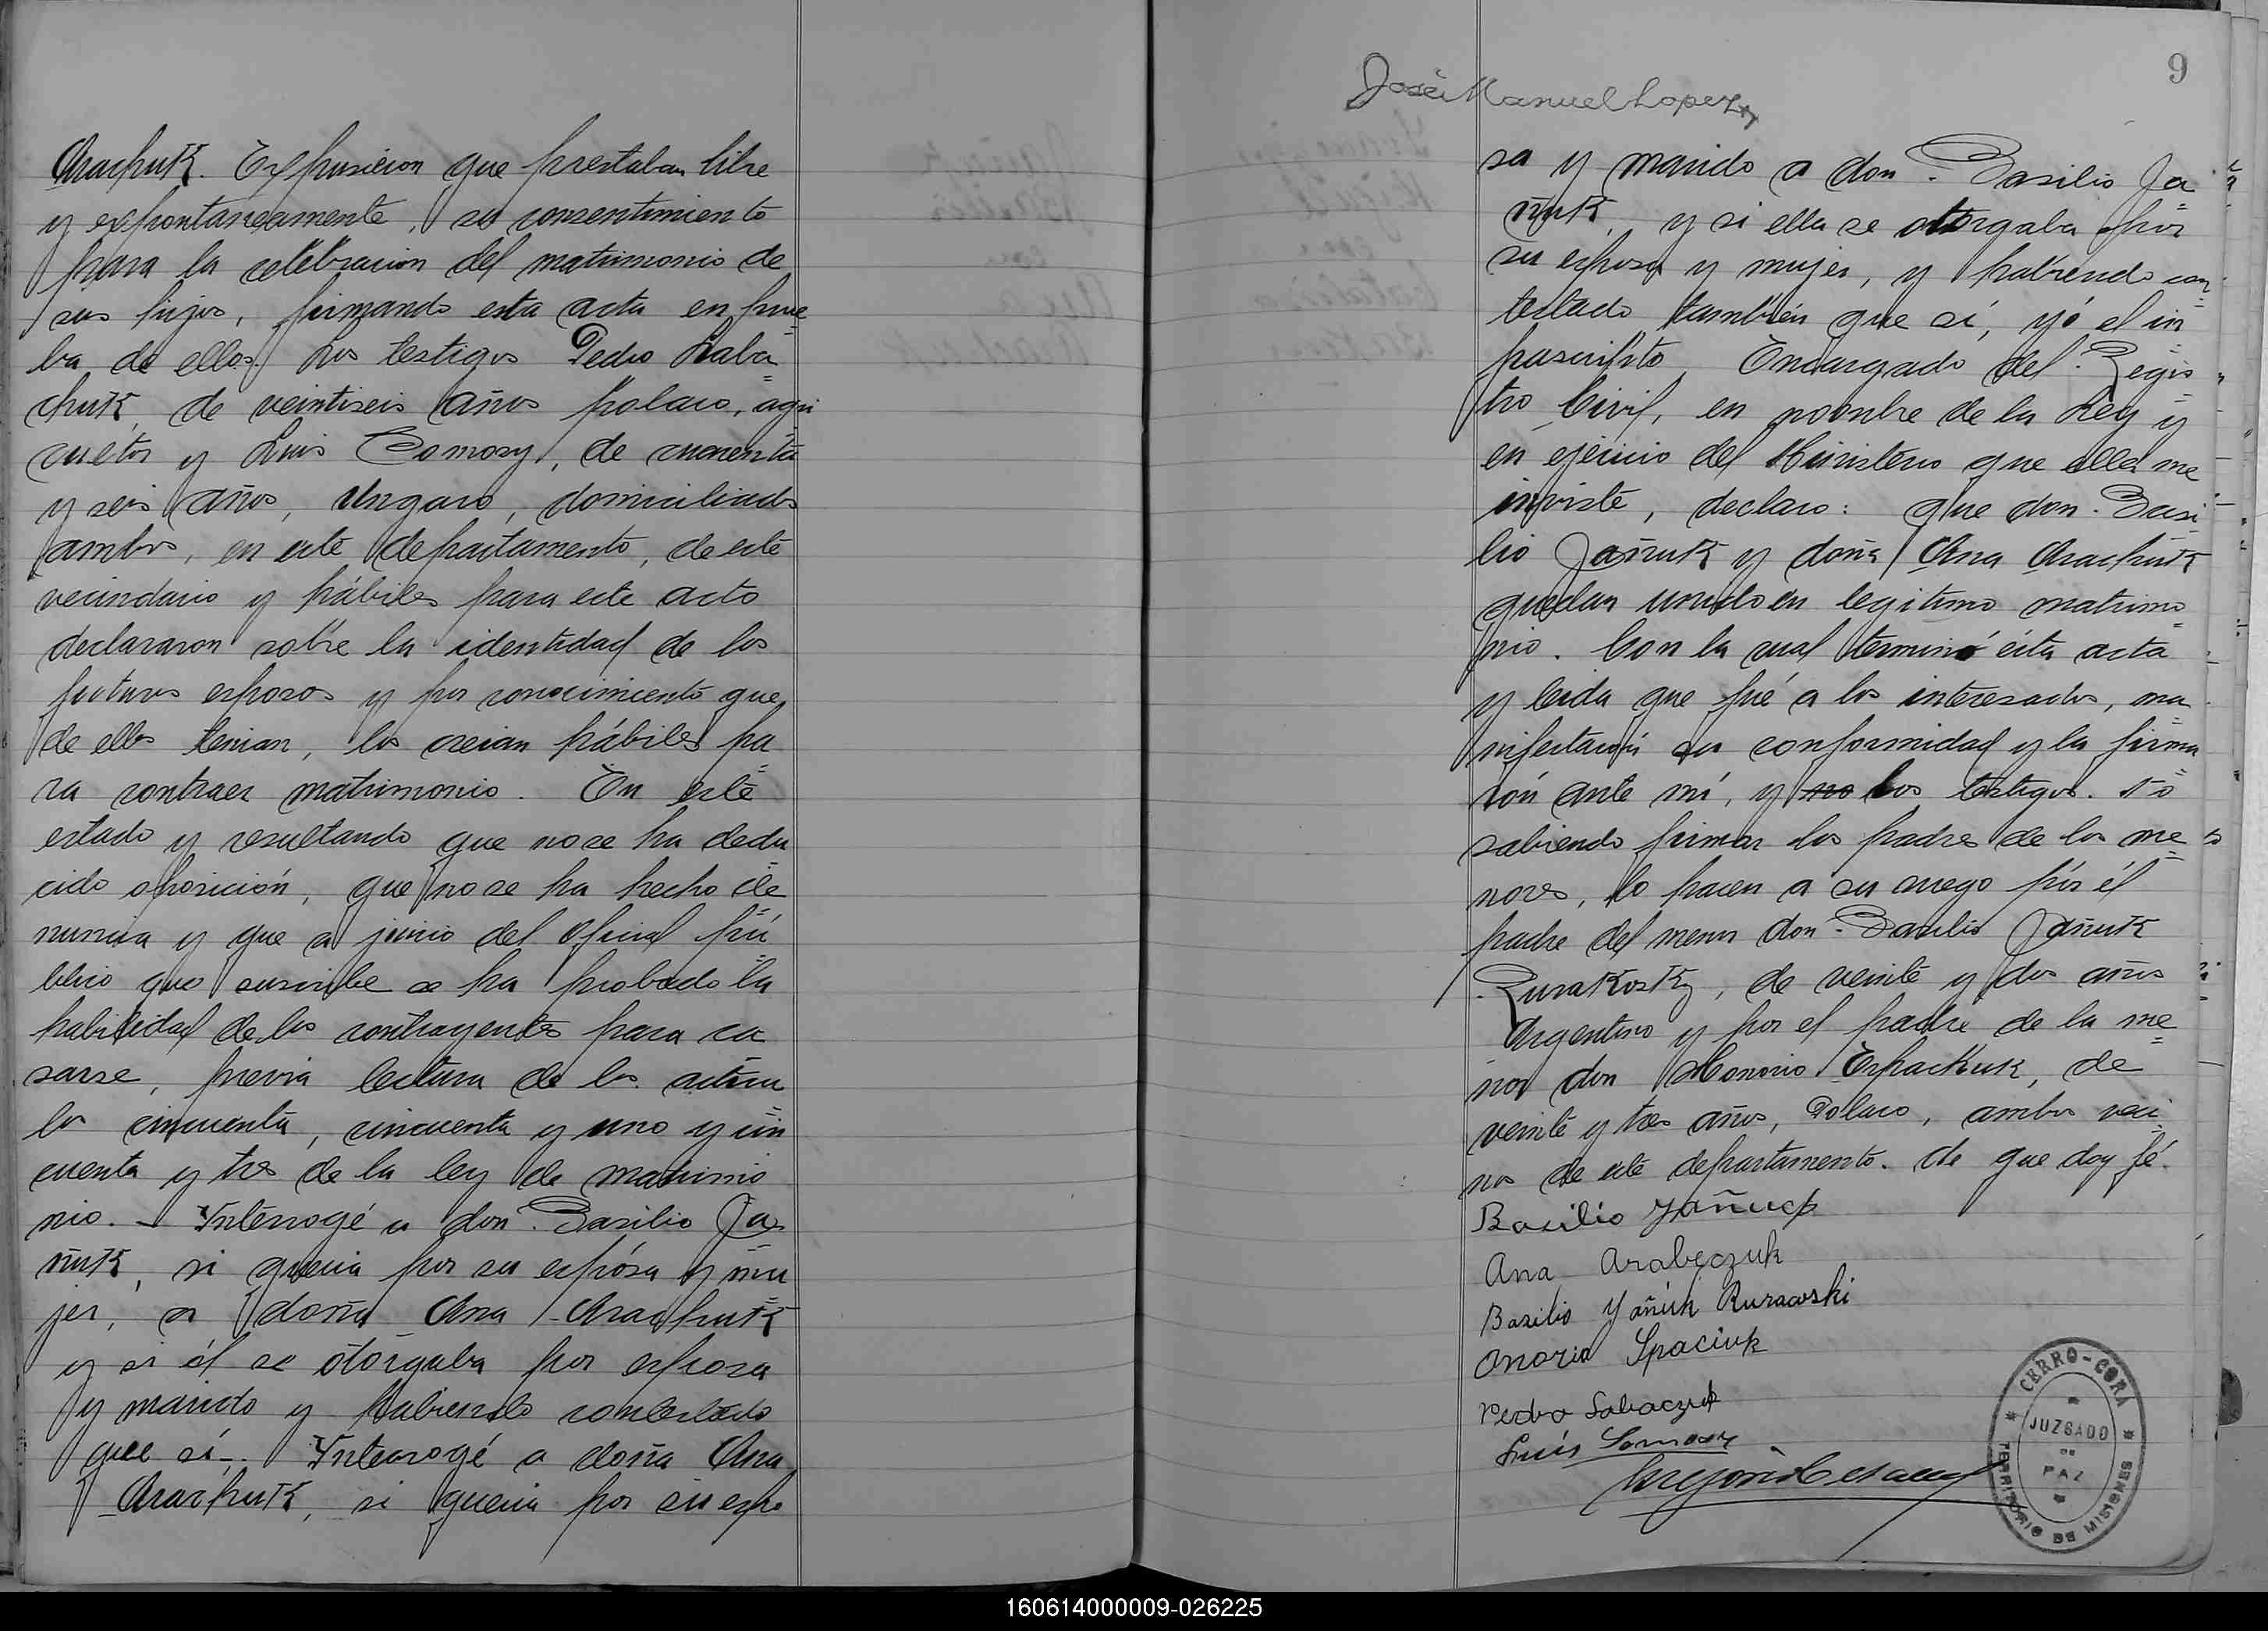 Arachuk. Expusieron que prestaban libre
y expontaneamente, su consentimiento
para la celebracion del matrimonio de
sus hijos, firmando esta acta en prue
ba de ellos. Los testigos Pedro Laba
chuk, de veintiseis años polaco, agri
cultor y Luis Somosy, de cuarenta
y seis años, Ungaro, domiciliados
ambos, en este departamento, de este
vecindario y hábiles para este acto
declararon sobre la identidad de los
futuros esposos y por conocimiento que
de ellos tenian, los creian hábiles pa
ra contraer matrimonio. En este
estado y resultando que no se ha dedu
cido oposición, que no se ha hecho de
nuncia y que a juicio del Oficial pú
blico que suscribe se ha probado la
habilidad de los contrayentes para ca
sarse, previa lectura de los articu
los cincuenta, cincuenta y uno y cin
cuenta y tres de la ley de matrimo
nio. - Interrogé a don Basilio Ja
ñuk, si queria por su espósa y mu
jer, a doña Ana Arachuk
y si él se otorgaba por esposa
y marido y habiendo contestado
que sí -. Interrogé a doña Ana
Arachuk, si queria por su espo
José Manuel Lopez
9
sa y marido a don Basilio Ja
ñuk, y si ella se otorgaba por
su esposa y mujer, y habiendo con
testado también que sí, yó el in
frascripto Encargado del Regis
tro Civil, en noombre de la Ley y
en ejercicio del Ministerio que ella me
inviste, declaro: que don Basi
lio Jañuk y doña Ana Arachuk
quedan unido en legitimo matrimo
nio. Con la cual terminó ésta acta
y leida que fué a los interesados, ma
nifestarón su conformidad y la firma
rón ante mí, y no los testigos. No
sabiendo firmar los padres de los me
nores, lo hacen a su ruego pór él
padre del menor don Basilio Jañuk
Rurakosky, de veinte y dos años
Argentino y por el padre de la me
nor don Honorio Espachuk, de
veinte y tres años, Polaco, ambos veci
nos de este departamento. De que doy fé.
Basilio Yañuck
Ana Arabeczuk
Basilio Yañuk Rurawski
Onorio Spaciuk
Pedro Labaczuk
Luís Somosy
CERRO-CORÁ
JUZGADO
DE
PAZ
TERRITORIO DE MISIONES
160614000009-026225